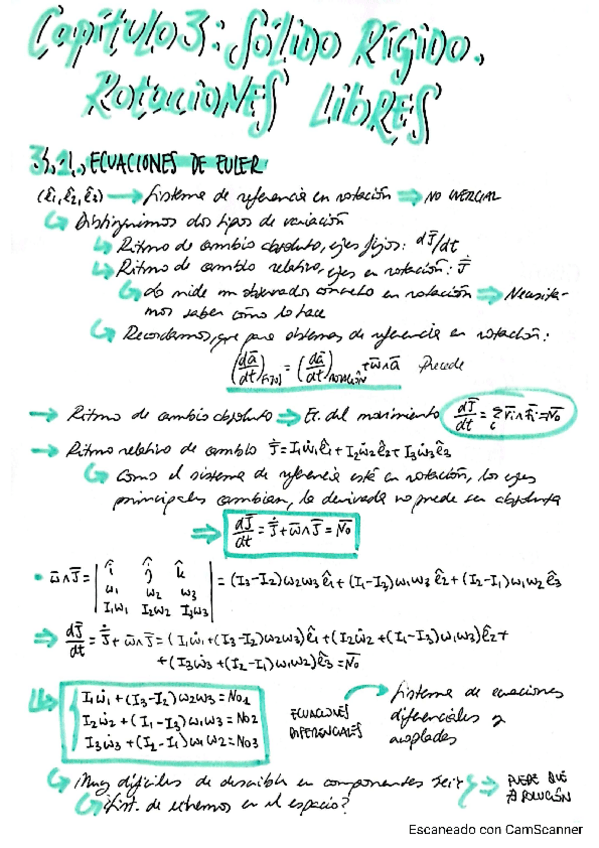 Capítulo 3: Sólido Rígido.
Rotaciones Libres
3.1. ECUACIONES DE EULER
(ê₁, ê₂, ê₃) → Sistema de referencia en rotación ⇒ NO INERCIAL
↳ Distinguimos dos tipos de variación
↳ Ritmo de cambio absoluto, ejes fijos: dJ̄/dt
↳ Ritmo de cambio relativo, ejes en rotación: J̄̇
↳ Lo mide un observador concreto en rotación ⇒ Necesita-
mos saber cómo lo hace
↳ Recordamos, que para sistemas de referencia en rotación:
(dā/dt)FIJO = (dā/dt)ROTACIÓN + ω̄∧ā Precede
→ Ritmo de cambio absoluto ⇒ Ec. del movimiento dJ̄/dt = Σᵢ r̄ᵢ∧F̄ᵢ = N̄₀
→ Ritmo relativo de cambio J̄̇ = I₁ω̇₁ê₁ + I₂ω̇₂ê₂ + I₃ω̇₃ê₃
↳ Como el sistema de referencia está en rotación, los ejes
principales cambian, la derivada no puede ser absoluta
⇒ dJ̄/dt = J̄̇ + ω̄∧J̄ = N̄₀
• ω̄∧J̄ = | î ĵ k̂ |
| ω₁ ω₂ ω₃ | = (I₃-I₂)ω₂ω₃ ê₁ + (I₁-I₃)ω₁ω₃ ê₂ + (I₂-I₁)ω₁ω₂ ê₃
| I₁ω₁ I₂ω₂ I₃ω₃ |
⇒ dJ̄/dt = J̄̇ + ω̄∧J̄ = (I₁ω̇₁ + (I₃-I₂)ω₂ω₃)ê₁ + (I₂ω̇₂ + (I₁-I₃)ω₁ω₃)ê₂ +
+ (I₃ω̇₃ + (I₂-I₁)ω₁ω₂)ê₃ = N̄₀
I₁ω̇₁ + (I₃-I₂)ω₂ω₃ = N₀₁
I₂ω̇₂ + (I₁-I₃)ω₁ω₃ = N₀₂
I₃ω̇₃ + (I₂-I₁)ω₁ω₂ = N₀₃
ECUACIONES
DIFERENCIALES
→ Sistema de ecuaciones
diferenciales y
acopladas
↳ Muy difíciles de describir en componentes
↳ ¿Sist. de en el espacio?
⇒ PUEDE QUE
∄ SOLUCIÓN
Escaneado con CamScanner